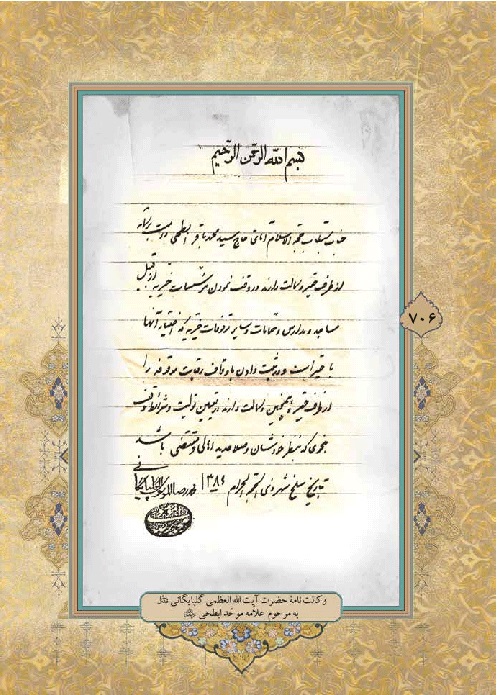 بسم الله الرحمن الرحیم
جناب مستطاب حجة الاسلام آقای حاج سید محمد باقر ابطحی دامت برکاته
از طرف حقیر وکالت دارند در وقف نمودن مؤسسات خیریه از قبیل
مساجد و مدارس و حمامات و سایر موقوفات خیریه که اختیار آنها
با حقیر است و در ثبت دادن با وقاف رقبات موقوفه را
از طرف حقیر و همچنین وکالت دارند در تعیین تولیت و شرائط وقف
بنحوی که بنظر خودشان و صلاحدید اهالی و مقتضی باشد
بتاریخ سلخ شهر ذی القعدة الحرام ۱۳۸۴
محمد رضا الموسوی الگلپایگانی
۷۰۶
وکالت‌نامۀ حضرت آیت الله العظمی گلپایگانی
به مرحوم علامه موحد ابطحی